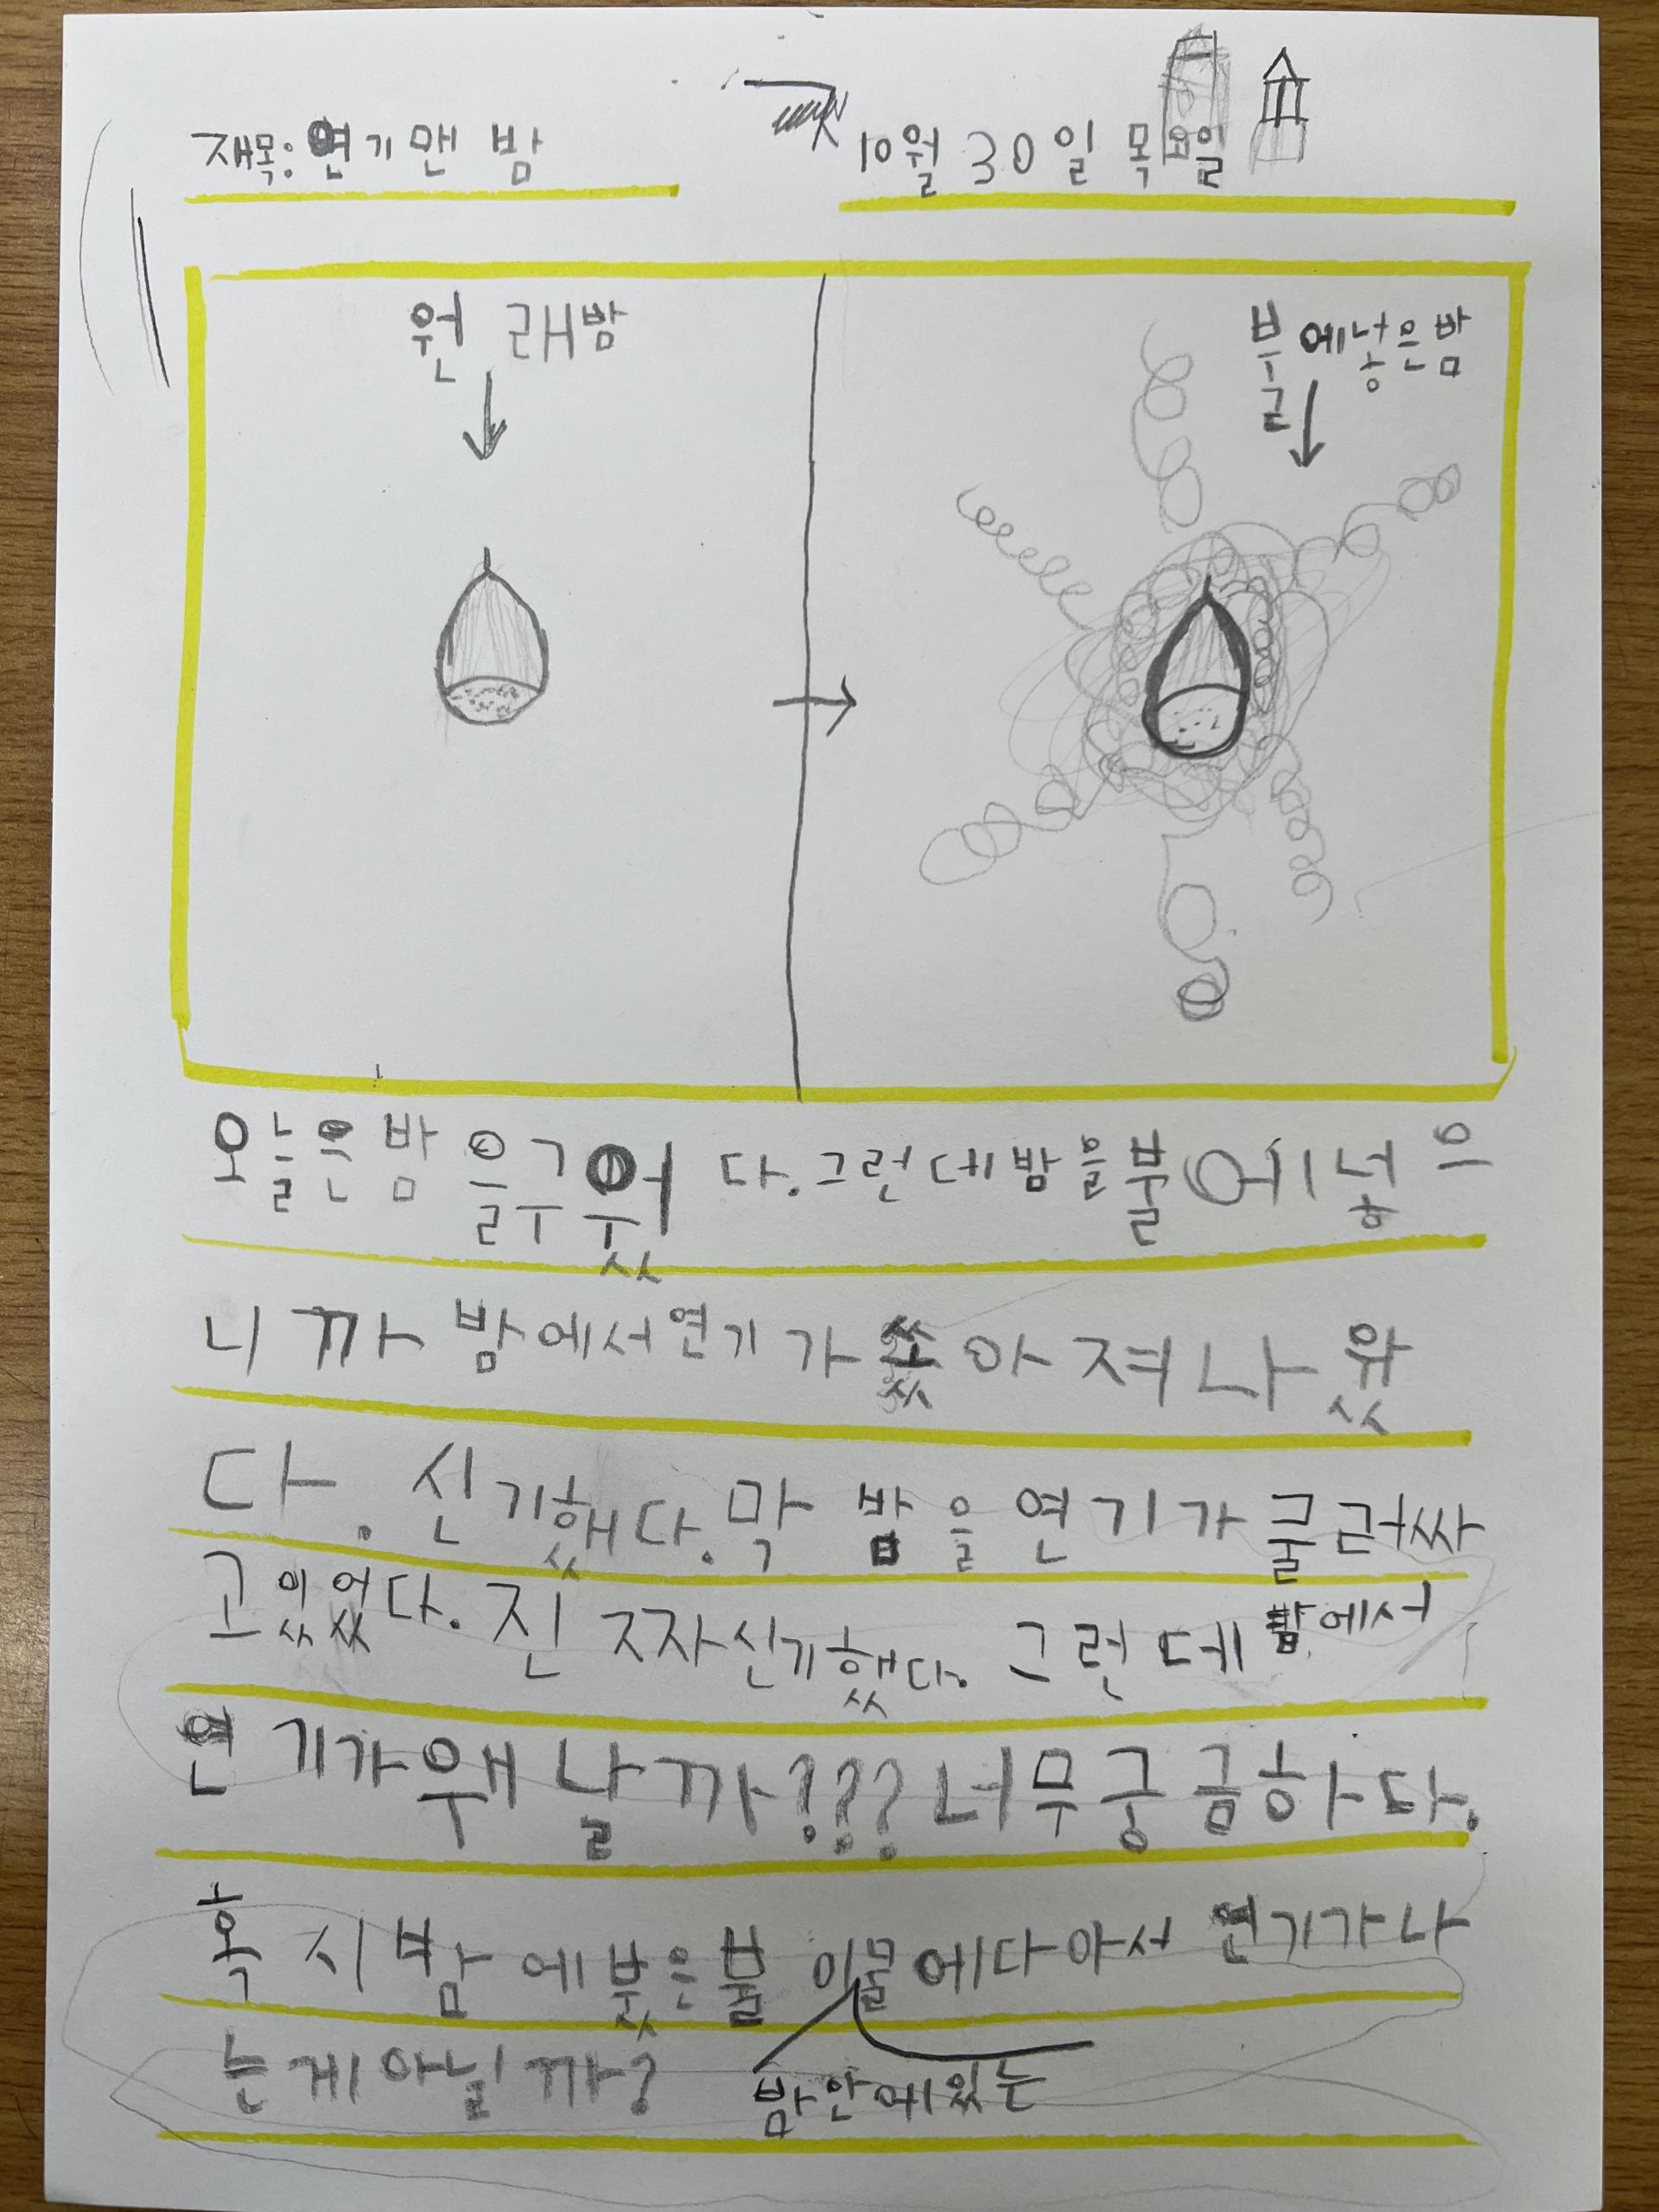 재목: 연기맨 밤
10월 30일 목요일
원래밤
불에넣은밤
오늘은밤을구웠다. 그런데밤을불에넣으
니까 밤에서연기가 쏬아져나왔
다. 신기했다. 막 밤을연기가 굴러싸
고있었다. 진짜신기했다. 그런데 밤에서
연기가왜 날까??? 너무궁금하다.
혹시밤에붙은불이물에다아서 연기가나
는게아닐까? 밤안에있는